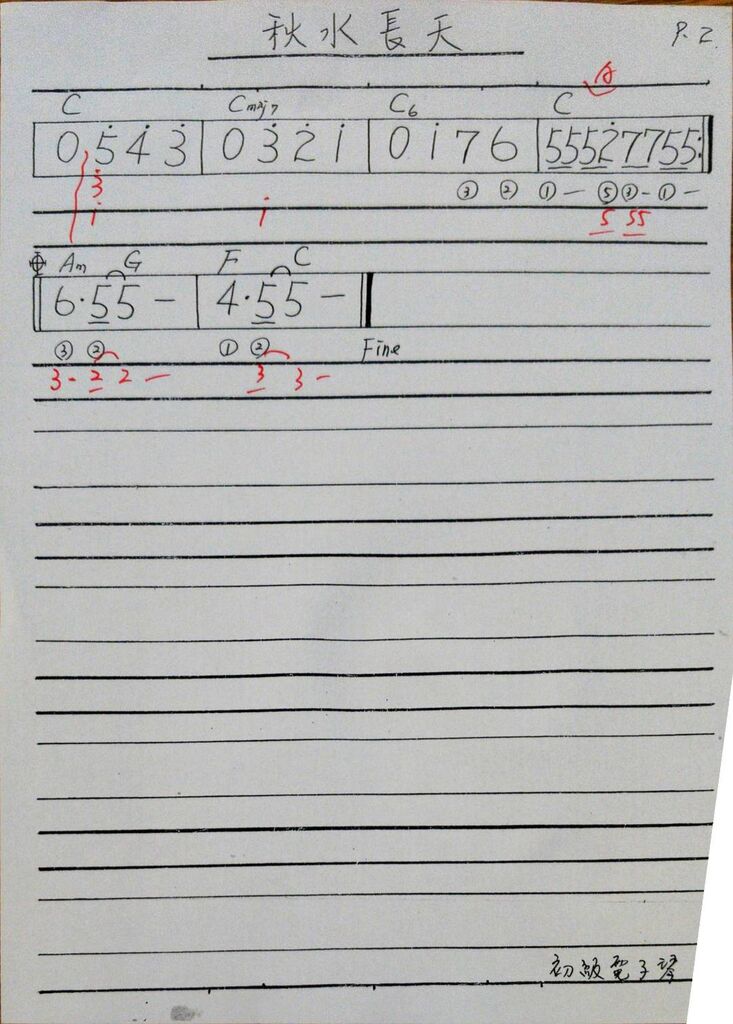 秋水長天 P.2
C Cmaj7 C6 C
0 5̇ 4̇ 3̇ | 0 3̇ 2̇ 1̇ | 0 1̇ 7 6 | 5552̇7755 :|
3̇ ③ ② ① — ⑤ ③ - ① —
i̇ i̇ 5 55
Am G F C
6·55 — | 4·55 — |
③ ② ① ② Fine
3 - 2 2 — 3 3 -
初級電子琴